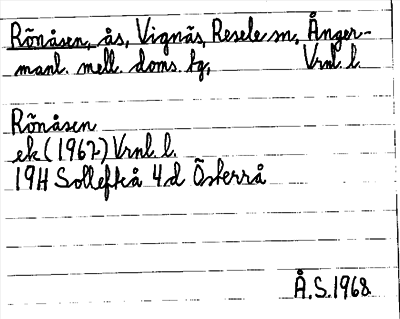 Rönåsen, ås, Vignäs, Resele sn, Ånger-
manl. mell. doms. fg, Vrnl. l.
Rönåsen
ek (1967) Vrnl. l.
19H Sollefteå 4d Österrå
Å.S. 1968